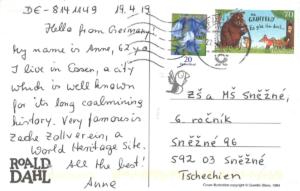 DE-8141149 19.4.19
Hello from Germany!
My name is Anne, 62 yo
I live in Essen, a city
which is well known
for its long coalmining
history. Very famous is
Zeche Zollverein, a
World Heritage Site.
All the best!
Anne
ROALD
DAHL
20
GRÜFFELO
70
ZŠ a MŠ Sněžné,
6. ročník
Sněžné 96
592 03 SNĚŽNÉ
Tschechien